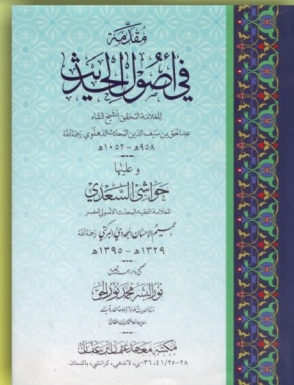 مقدمة
في أصول الحديث
للعلامة المحقق الشيخ الشاه
عبد الحق بن سيف الدين المحدث الدهلوي رحمه الله
٩٥٨ھ - ١٠٥٢ھ
و عليها
حواشي السعدي
للعلامة الفقيه المحدث الأصولي المفسر
عميم الإحسان المجددي البركتي رحمه الله
١٣٢٩ھ - ١٣٩٥ھ
نور البشر محمد نور الحق
مكتبة معهد عثمان بن عفان
كراتشي، باكستان.